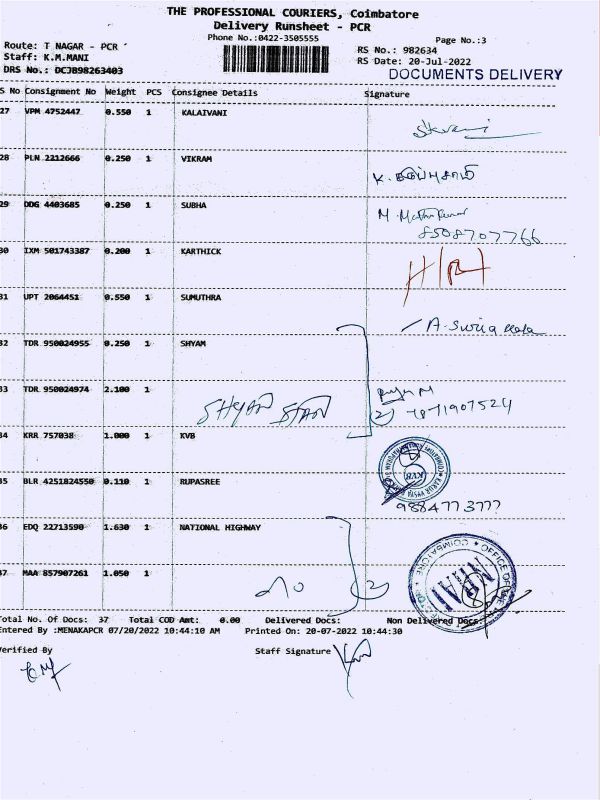 THE PROFESSIONAL COURIERS, Coimbatore
Delivery Runsheet - PCR
Phone No.:0422-3505555
Page No.:3
Route: T NAGAR - PCR
RS No.: 982634
Staff: K.M.MANI
RS Date: 20-Jul-2022
DRS No.: DCJB98263403
DOCUMENTS DELIVERY
S No Consignment No Weight PCS Consignee Details Signature
27 VPM 4752447 0.550 1 KALAIVANI
28 PLN 2212666 0.250 1 VIKRAM
29 DDG 4403685 0.250 1 SUBHA
8508707766
30 IXM 501743387 0.200 1 KARTHICK
31 UPT 2064451 0.550 1 SUMUTHRA
32 TDR 950024955 0.250 1 SHYAM
33 TDR 950024974 2.100 1
(2) 7871907524
34 KRR 757038 1.000 1 KVB
KVB
35 BLR 4251824550 0.110 1 RUPASREE
9884773777
36 EDQ 22713590 1.630 1 NATIONAL HIGHWAY
37 MAA 857907261 1.050 1
(2)
NHAI
Total No. Of Docs: 37 Total COD Amt: 0.00 Delivered Docs: Non Delivered Docs:
Entered By :MENAKAPCR 07/20/2022 10:44:10 AM Printed On: 20-07-2022 10:44:30
Verified By
Staff Signature